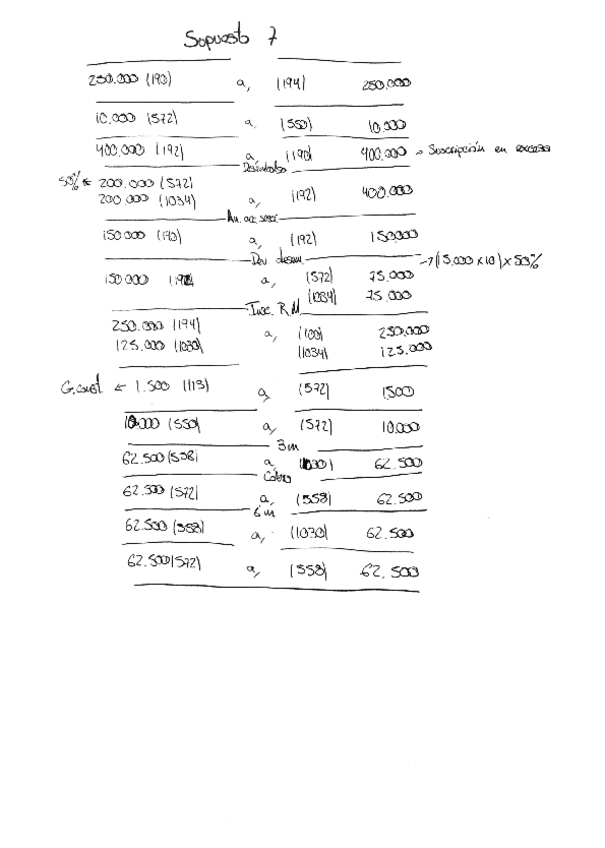 Supuesto 7
250.000 (190) a, (194) 250.000
10.000 (572) a, (550) 10.000
400.000 (192) a (190) 400.000 → Suscripción en exceso
Desembolso
50% ← 200.000 (572)
200.000 (1034) a, (192) 400.000
An. acc. sor.
150.000 (190) a, (192) 150.000
Dev desem. → (15.000 x 10) x 50%
150.000 (192) a, (572) 75.000
(1034) 75.000
Insc. R.M
250.000 (194) a, (100) 250.000
125.000 (1030) (1034) 125.000
G. const ← 1.500 (113) a, (572) 1500
10.000 (550) a, (572) 10.000
3 m
62.500 (558) a, (1030) 62.500
Cobro
62.500 (572) a, (558) 62.500
6 m
62.500 (558) a, (1030) 62.500
62.500 (572) a, (558) 62.500